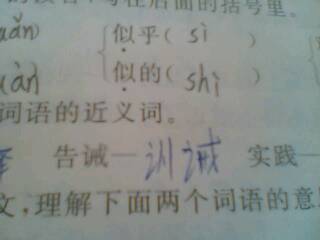 后面的括号里。
uǎn) 似乎( sì )
uàn) 似的( shì )
词语的近义词。
告诫—训诫 实践—
文,理解下面两个词语的意